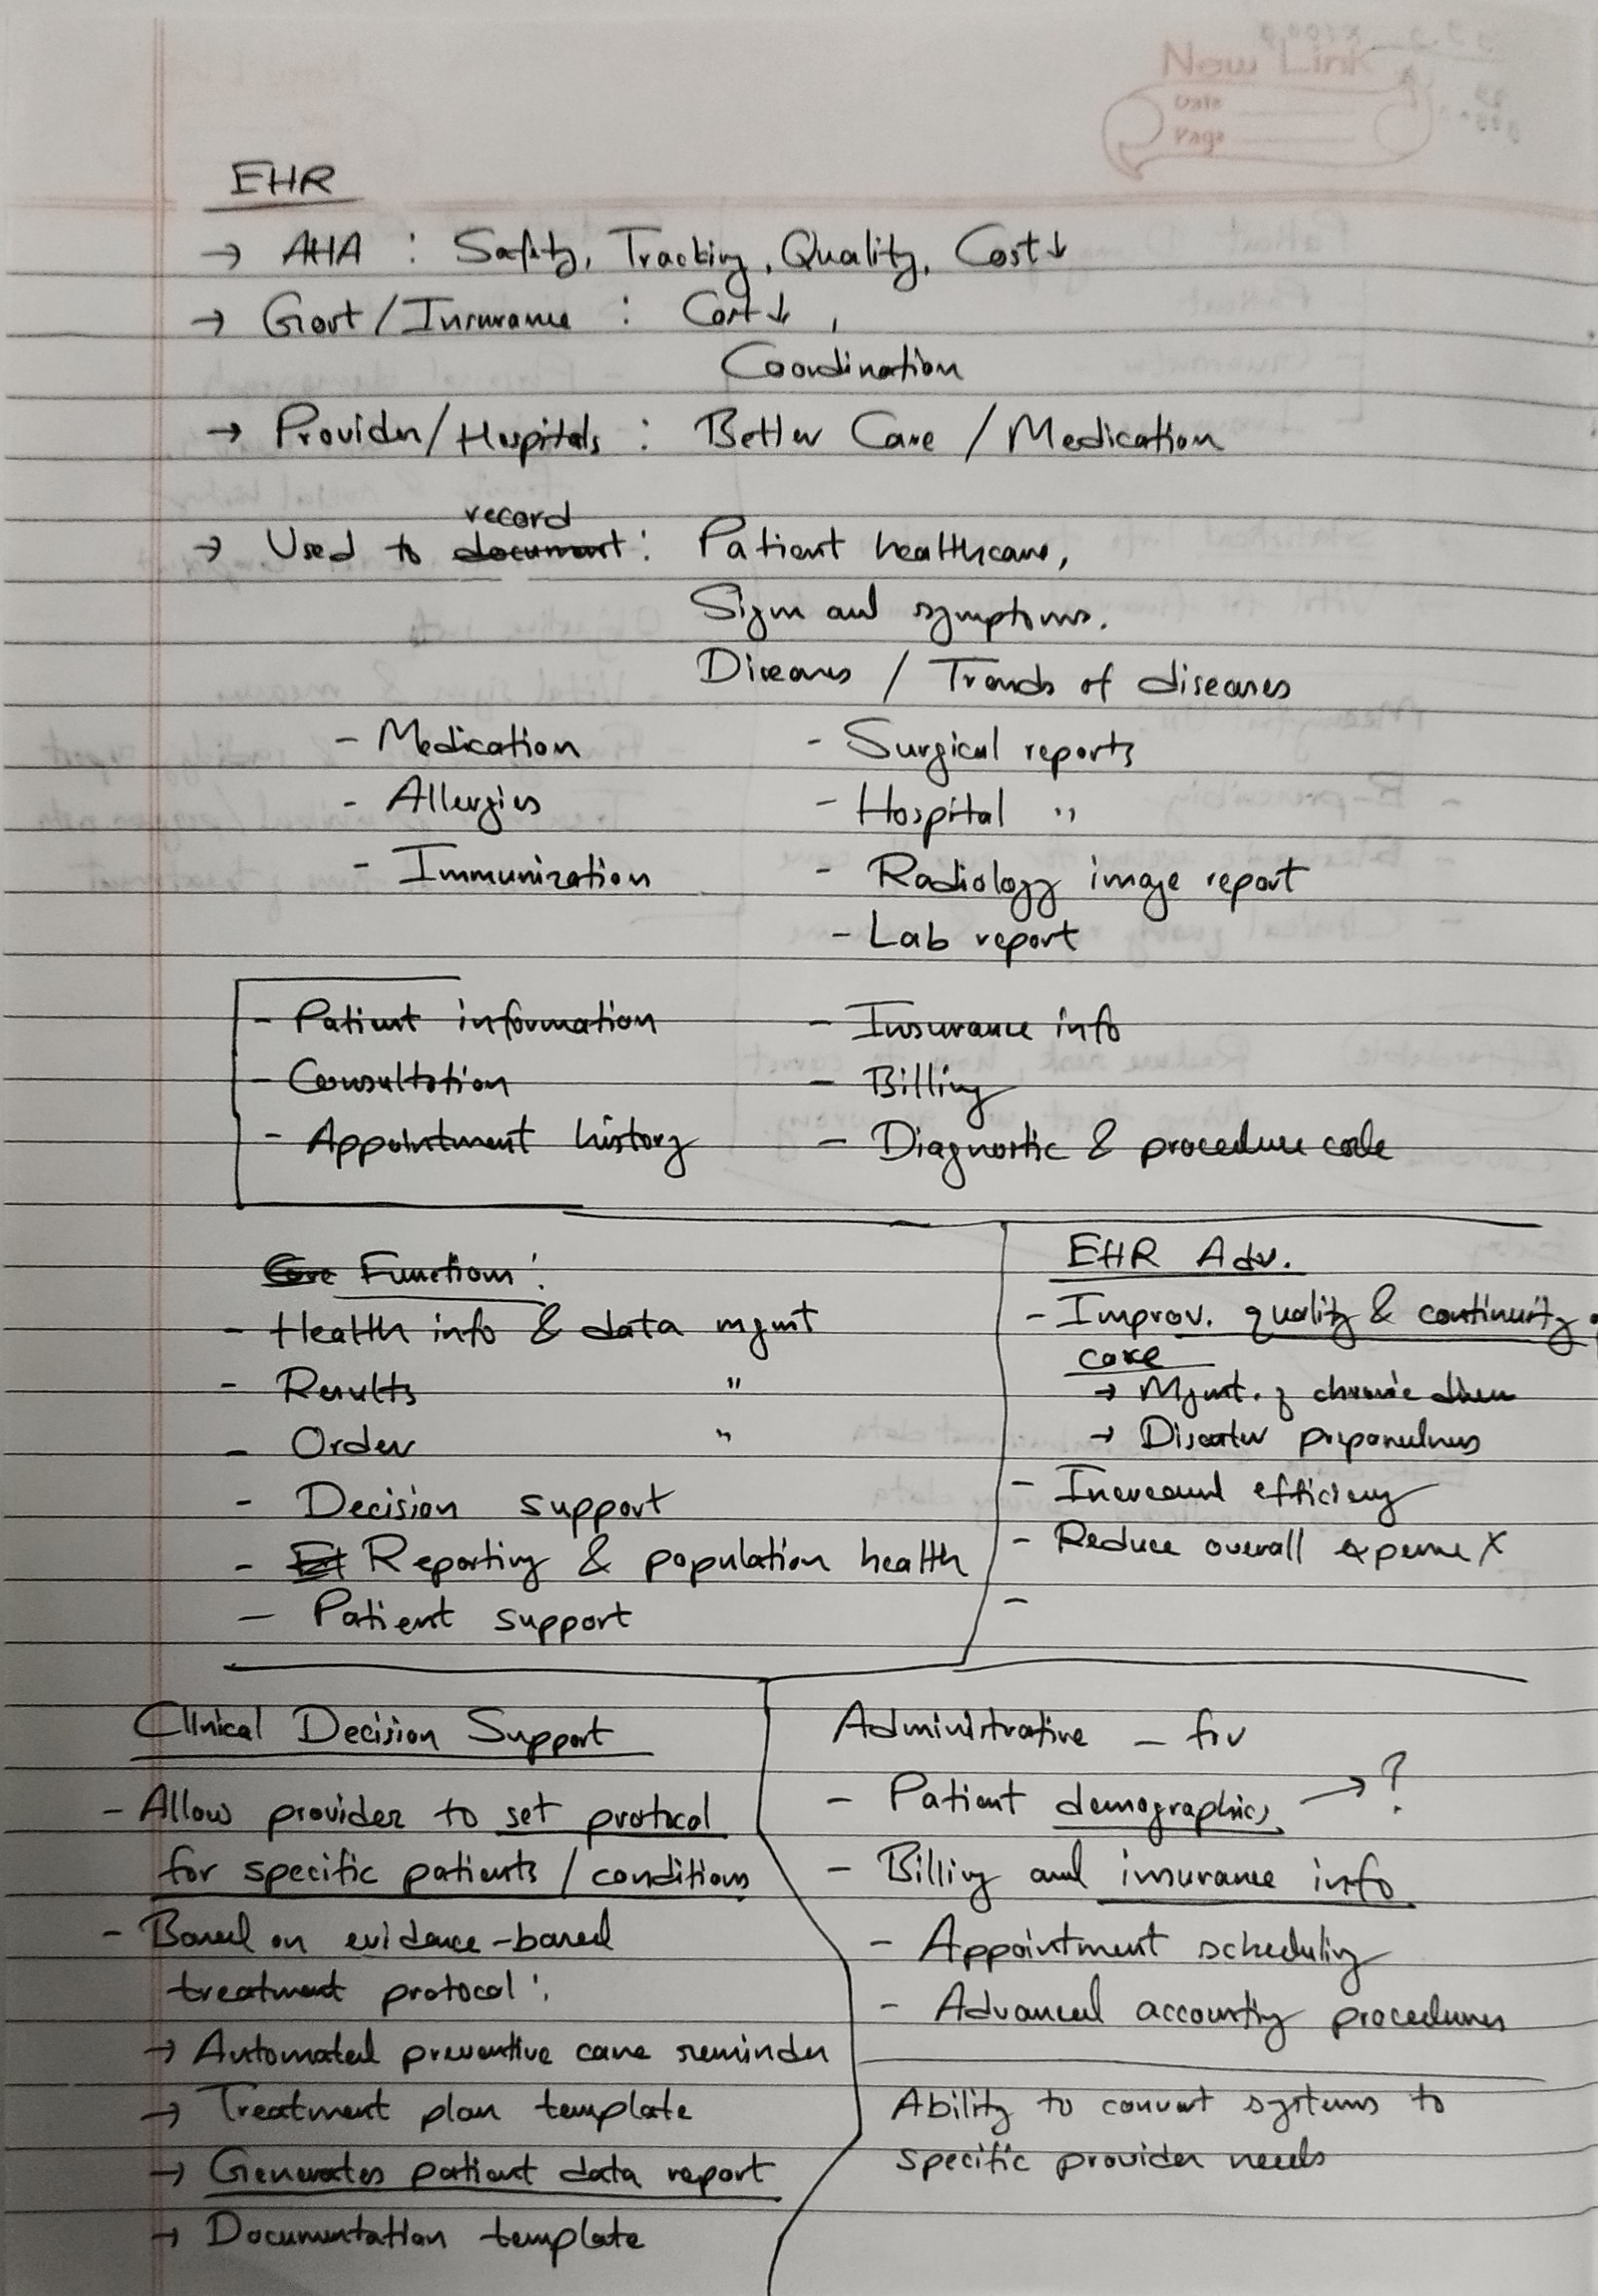 New Link
Date
Page
EHR
→ AHA : Safety, Tracking, Quality, Cost ↓
→ Govt / Insurance : Cost ↓ ,
Coordination
→ Provider / Hospitals : Better Care / Medication
record
→ Used to document : Patient healthcare,
Sign and symptoms.
Diseases / Trends of diseases
- Medication
- Allergies
- Immunization
- Surgical reports
- Hospital "
- Radiology image report
- Lab report
- Patient information
- Consultation
- Appointment history
- Insurance info
- Billing
- Diagnostic & procedure code
Core Functions :
- Health info & data mgmt
- Results "
- Order "
- Decision support
- Reporting & population health
- Patient support
EHR Adv.
- Improv. quality & continuity
care
→ Mgmt. of chronic disease
→ Disaster preparedness
- Increased efficiency
- Reduce overall expense X
-
Clinical Decision Support
- Allow provider to set protocol
for specific patients / conditions
- Based on evidence-based
treatment protocol :
→ Automated preventive care reminder
→ Treatment plan template
→ Generates patient data report
→ Documentation template
Administrative - for
- Patient demographics, → ?
- Billing and insurance info
- Appointment scheduling
- Advanced accounting procedures
Ability to convert systems to
specific provider needs